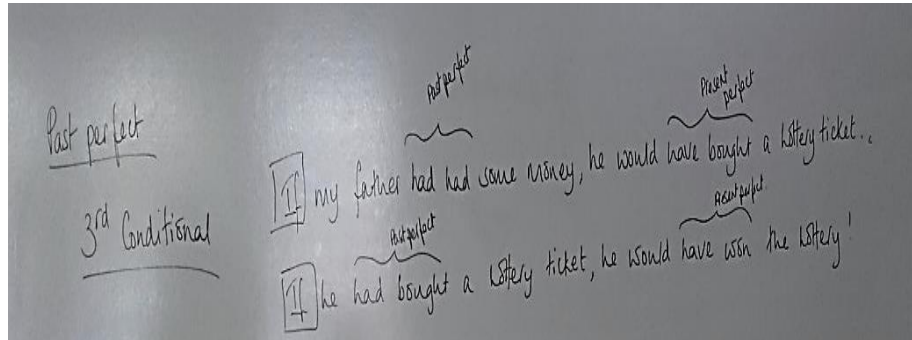 Past perfect
3rd Conditional
Past perfect
Present perfect
If my father had had some money, he would have bought a lottery ticket..
Past perfect
Present perfect.
If he had bought a lottery ticket, he would have won the lottery!